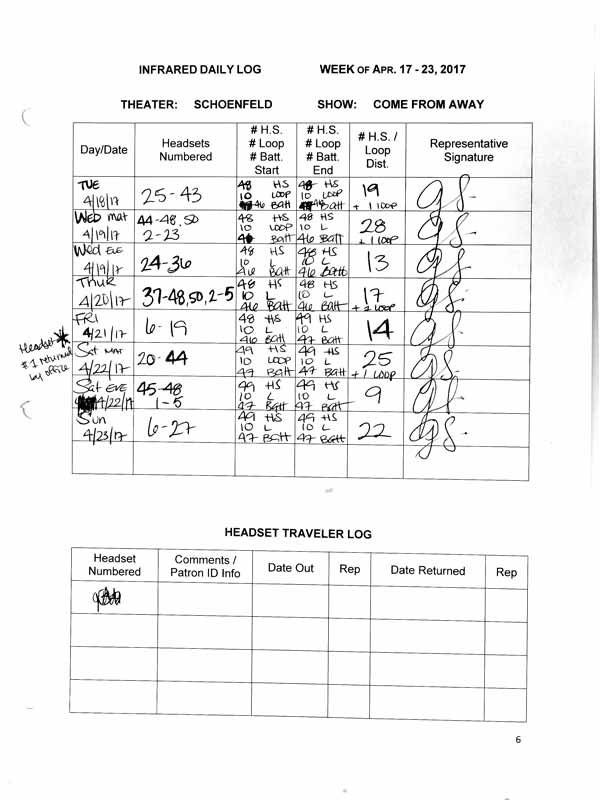 INFRARED DAILY LOG WEEK OF APR. 17 - 23, 2017
THEATER: SCHOENFELD SHOW: COME FROM AWAY
Day/Date Headsets Numbered # H.S. # Loop # Batt. Start # H.S. # Loop # Batt. End # H.S. / Loop Dist. Representative Signature
TUE 4/18/17 25-43 48 HS 10 LOOP 46 Batt 48 HS 10 LOOP 46 Batt 19 + 1 LOOP
Wed mat 4/19/17 44-48,50 2-23 48 HS 10 LOOP 46 Batt 48 HS 10 L 46 Batt 28 + 1 LOOP
Wed Eve 4/19/17 24-36 48 HS 10 L 46 Batt 48 HS 10 L 46 Batt 13
Thur 4/20/17 37-48,50,2-5 48 HS 10 L 46 Batt 48 HS 10 L 46 Batt 17 + 2 LOOP
FRI 4/21/17 6-19 48 HS 10 L 46 Batt 49 HS 10 L 47 Batt 14
Headset #1 returned by office
Sat mat 4/22/17 20-44 49 HS 10 LOOP 47 Batt 49 HS 10 L 47 Batt 25 + 1 LOOP
Sat EVE 4/22/17 45-48 1-5 49 HS 10 L 47 Batt 49 HS 10 L 47 Batt 9
Sun 4/23/17 6-27 49 HS 10 L 47 Batt 49 HS 10 L 47 Batt 22
HEADSET TRAVELER LOG
Headset Numbered Comments / Patron ID Info Date Out Rep Date Returned Rep
6